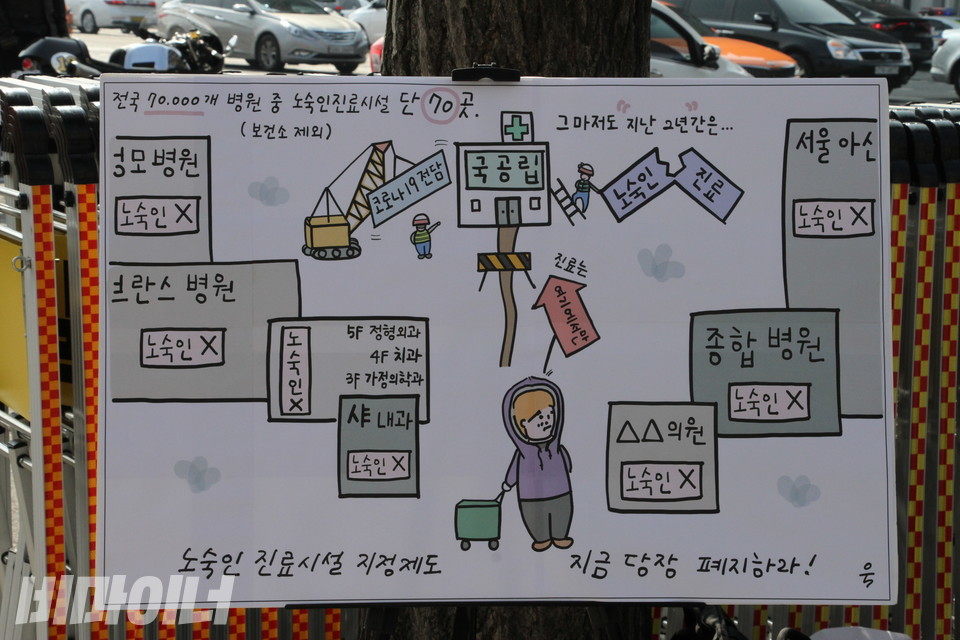 전국 70.000개 병원 중 노숙인진료시설 단 70곳.
(보건소 제외)
그마저도 "지난 2년간은..."
성모병원
노숙인 X
코로나19전담
국공립
노숙인 진료
서울 아산
노숙인 X
브란스 병원
노숙인 X
진료는
여기에서만
노숙인X
5F 정형외과
4F 치과
3F 가정의학과
샤 내과
노숙인 X
종합 병원
노숙인 X
△△의원
노숙인 X
노숙인 진료시설 지정제도 지금 당장 폐지하라!
육
비마이너